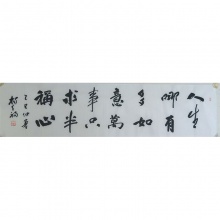 人生
哪有
多如
意萬
事只
求半
稱心